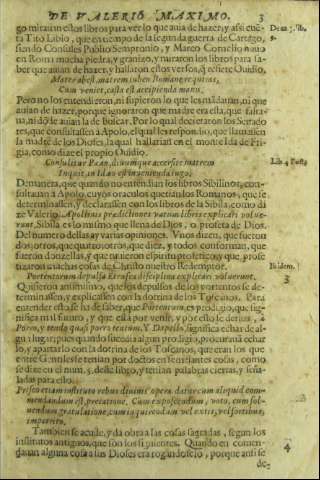 DE VALERIO MAXIMO. 3
go miraron estos libros para ver lo que auia de hazer, y assi cuẽ-
ta Tito Libio, que en tiempo de la segunda guerra de Cartago,
siendo Consules Publio Sempronio, y Marco Cornelio
en Roma mucha piedra, y granizo, y miraron los libros para sa-
ber que auian de hazer, y hallaron estos versos, q̃ refiere Ouidio,
Mater abest, matrem iubeo Romane requiras,
Cum veniet, casta est accipienda manu.
Pero no los entendieron, ni supieron lo que les mãdauan, ni que
auian de hazer, porque ignoraron que madre era esta, que falta-
ua, ni dõde auian la de buscar. Por lo qual decretaron los Senado
res, que consultassen a Apolo, el qual les respondio, que llamassen
la madre de los Dioses, la qual hallarian en el monte Ida de Fri-
gia, como dize el propio Ouidio.
Consulitur Pæan, diuumque accersite matrem
Inquit, in Idæo est inuenienda iugo.
De manera, que quando no entendian los libros Sibilinos, con-
sultauan a Apolo, cuyos oraculos querian los Romanos, que se
determinassen, y declarassen con los libros de la Sibila, como di
ze Valerio. Apollinis prædictiones vatum libris explicari volue-
runt. Sibila es lo mismo que llena de Dios, o profeta de Dios.
Del numero dellas ay varias opiniones. Vnos dizen, que fueron
dos, otros, que quatro, otros, que diez, y todos conforman, que
fueron donzellas, y que tuuieron espiritu profetico, y que profe
tizaron muchas cosas de Christo nuestro Redemptor.
Portentorum depulsa Etrusca disciplina explicari voluerunt.
Quisieron assimismo, que los depulsos de los portentos se de-
terminassen, y explicassen con la dotrina de los Toscanos. Para
entender esto se ha de saber, que Portentum, es prodigio, que sig-
nifica mal futuro, y que està por venir, y por esso se deriua, à
Porro, y tendo quasi porro tentum. Y Depello, significa echar de al-
gun lugar; pues quando sucedia algun prodigio, procurauã echar
lo, y apartarlo con la dotrina de los Toscanos, que eran los que
entre Gentiles se tenian por doctos en semejantes cosas, como
se dize en el num. 5. deste libro, y tenian palabras ciertas, y seña-
ladas para esto.
Prisco etiam instituto rebus diuinis opera datur cum aliquid com-
mendandum est, precatione. Cum exposcendum, voto, cum sol-
uendum gratulatione, cum inquirendum vel extis, vel sortibus,
impetrito.
Tambien se acude, y da obra a las cosas sagradas, segun los
institutos antiguos, que son los siguientes. Quando en comen-
dauan alguna cosa a los Dioses era rogandoselo, porque ansi se
de-
Lib. 4 Fasto
Ibidem.
3
4